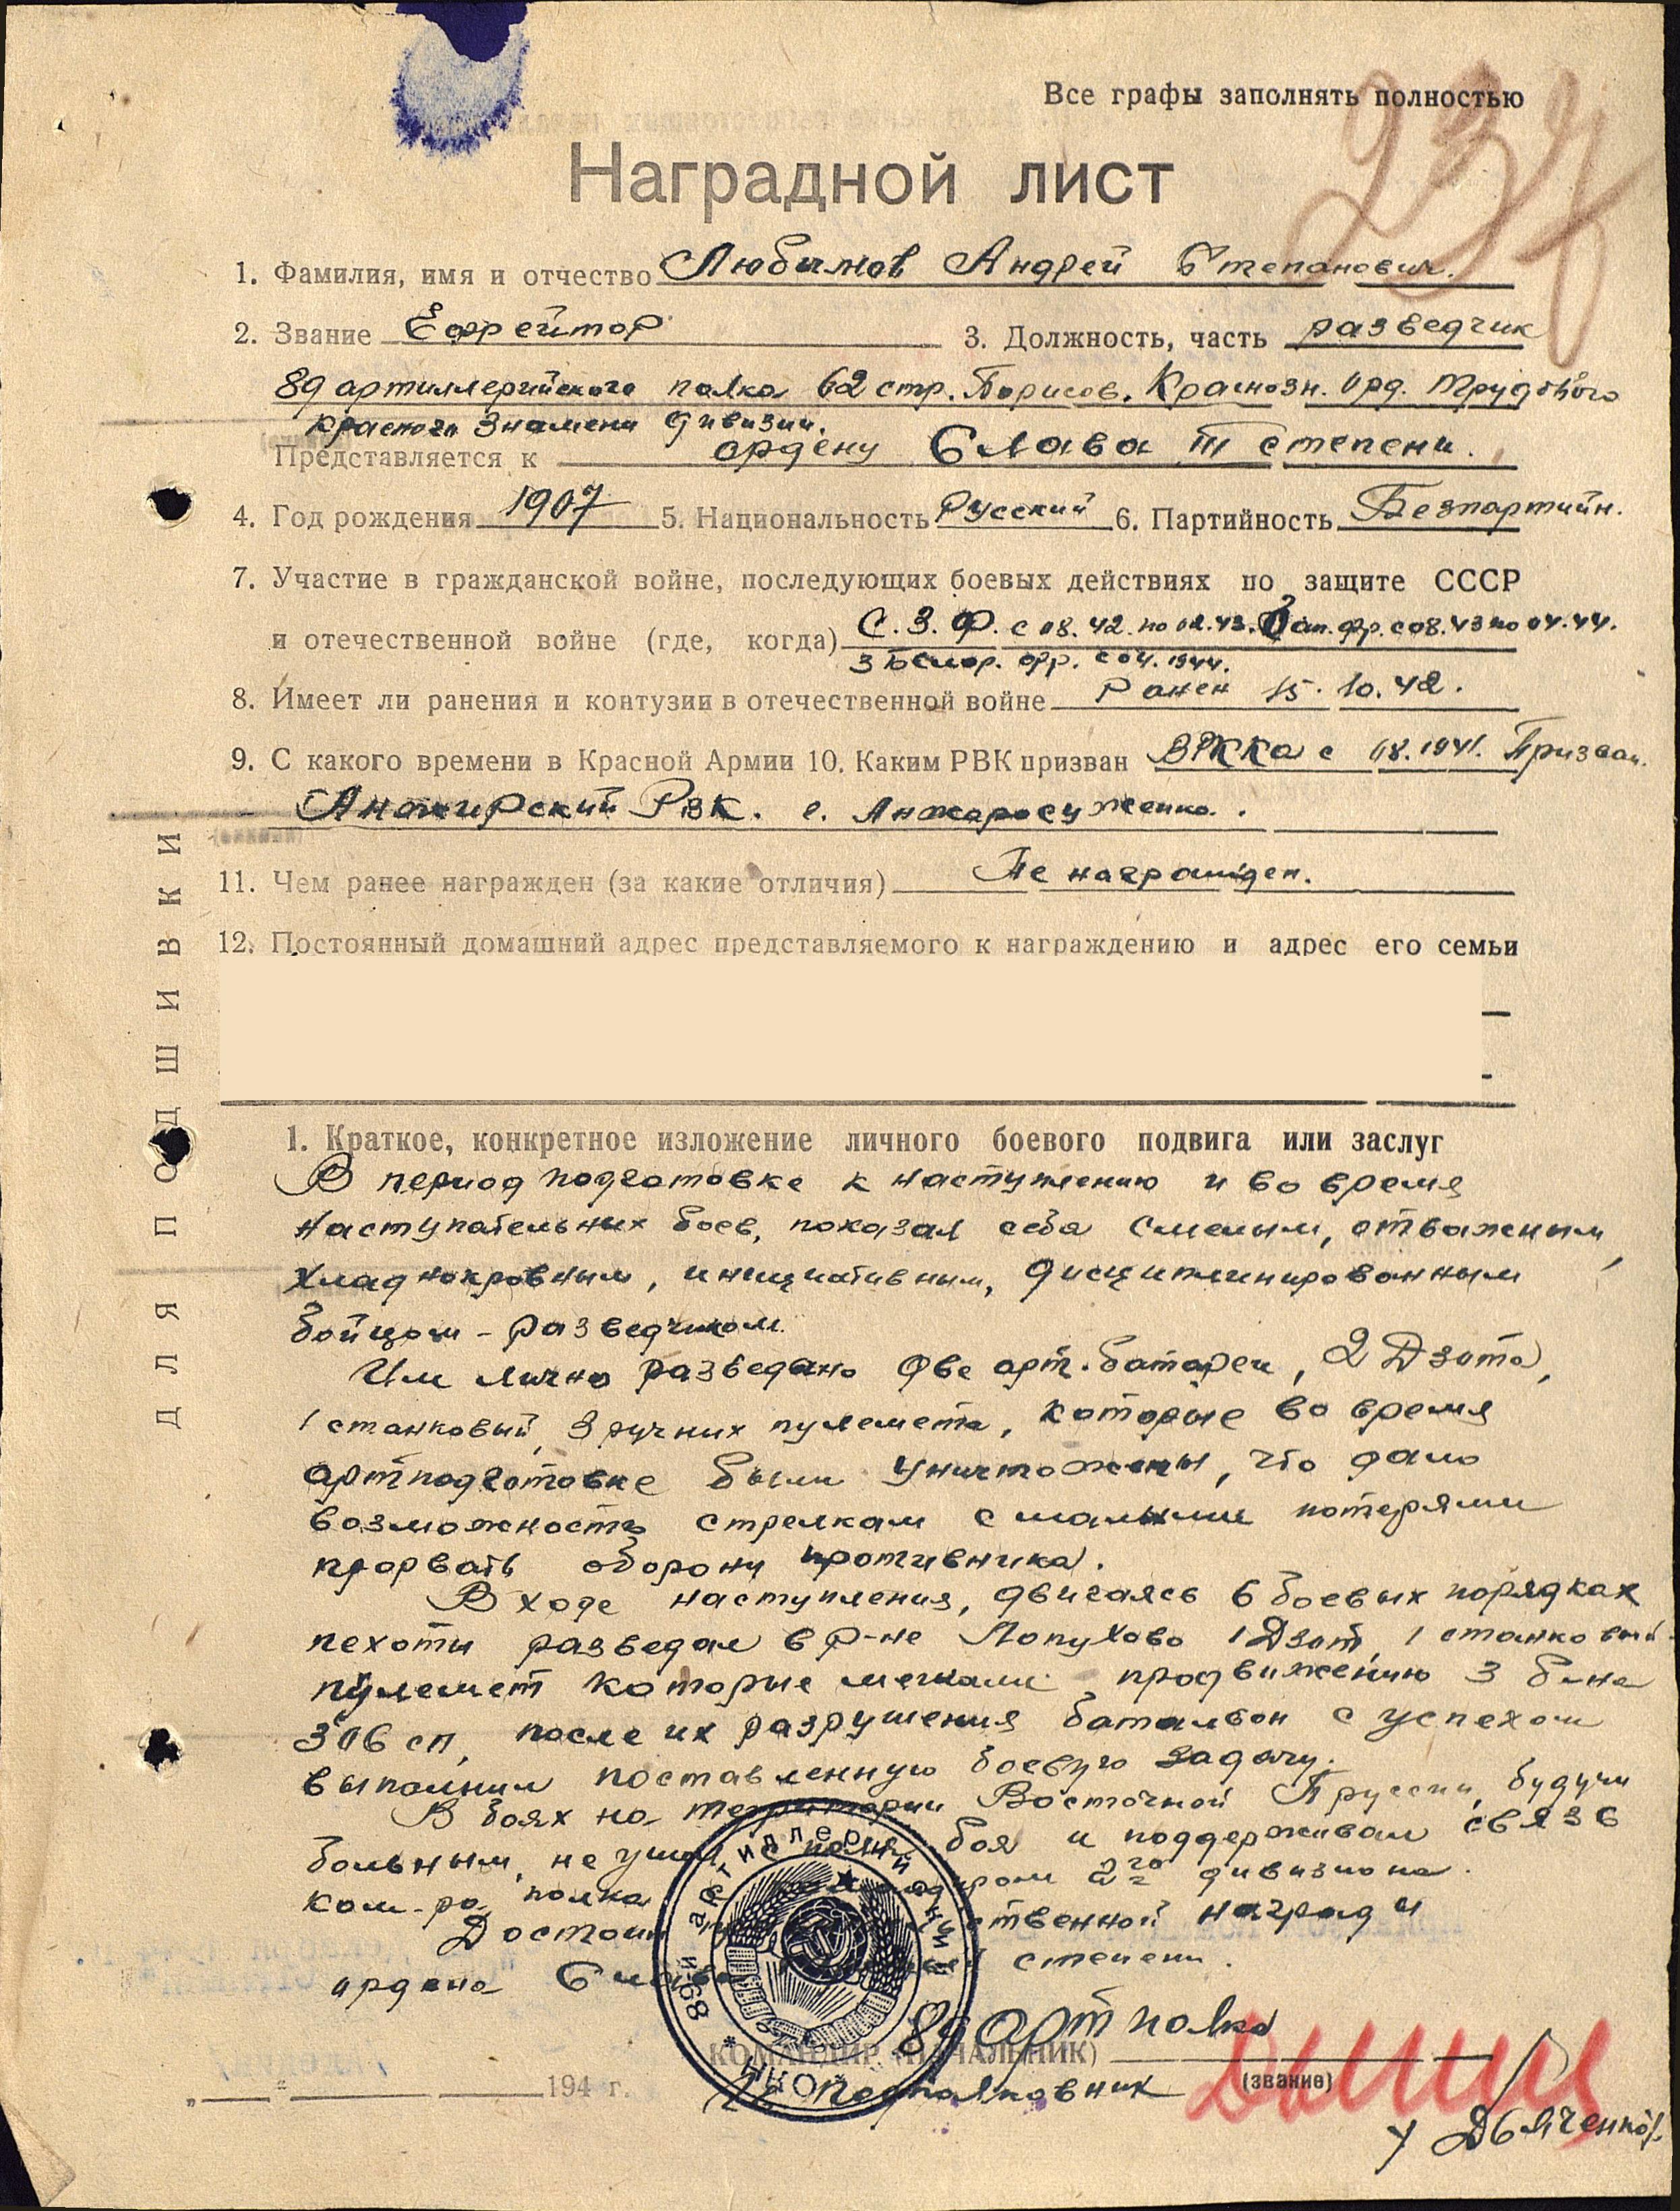 Все графы заполнять полностью
237
Наградной лист
1. Фамилия, имя и отчество Любимов Андрей Степанович.
2. Звание Ефрейтор 3. Должность, часть разведчик
89 артиллерийского полка 62 стр. Борисов. Краснозн. Орд. Трудового
красного Знамени дивизии.
Представляется к ордену Слава III степени.
4. Год рождения 1907 5. Национальность Русский 6. Партийность Безпартийн.
7. Участие в гражданской войне, последующих боевых действиях по защите СССР
и отечественной войне (где, когда) С.З.Ф. с 08.42. по 02.43. Зап. фр. с 08.43 по 04.44.
3 Белор. фр. с 04.1944.
8. Имеет ли ранения и контузии в отечественной войне Ранен 15.10.42.
9. С какого времени в Красной Армии 10. Каким РВК призван В РККА с 08.1941. Призван.
Анжирский РВК. г. Анжаросуженко.
11. Чем ранее награжден (за какие отличия) Не награжден.
12. Постоянный домашний адрес представляемого к награждению и адрес его семьи
ДЛЯ ПОДШИВКИ
1. Краткое, конкретное изложение личного боевого подвига или заслуг
В период подготовке к наступлению и во время
наступательных боев, показал себя смелым, отважным,
хладнокровным, инициативным, дисциплинированным
бойцом - разведчиком.
Им лично разведано две арт. батареи, 2 Дзота,
1 станковый, 3 ручних пулемета, которые во время
артподготовке были уничтожены, что дало
возможность стрелкам с малыми потерями
прорвать оборону противника.
В ходе наступления, двигаясь в боевых порядках
пехоты разведал в р-не Лопухово 1 Дзот, 1 станковый
пулемет которые мешали продвижению 3 б-на
306 сп, после их разрушения батальон с успехом
выполнил поставленную боевую задачу.
В боях на территории Восточной Пруссии, будучи
больным, не ушел поля боя и поддерживал связь
ком-ра полка командиром 2го дивизиона.
Достоин ственной награды
ордена Слава степени.
89 артполка
КОМАНДИР (НАЧАЛЬНИК)
Подполковник (звание)
„ “ 194 г.
/Дьяченко/.
89-й артиллерийский полк * НКО *